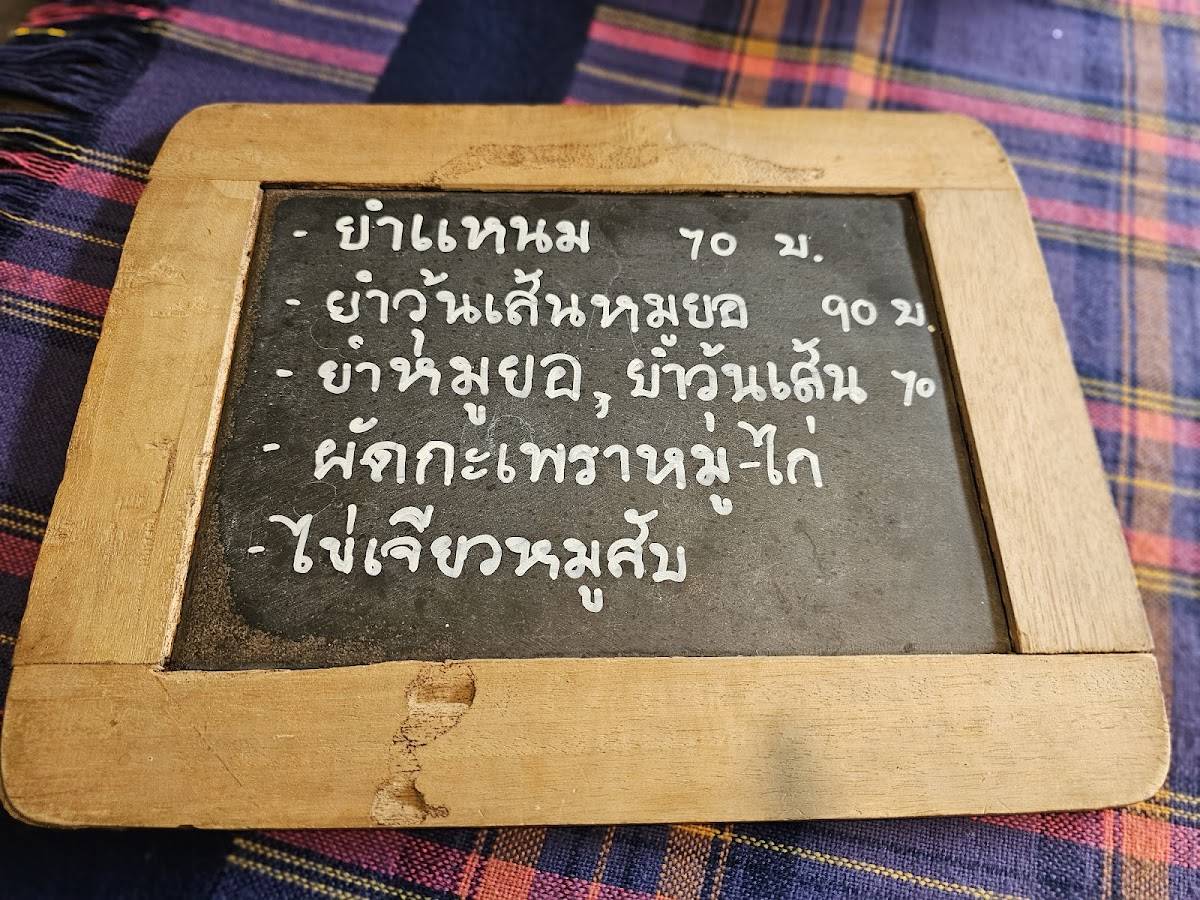 - ยำแหนม 70 บ.
- ยำวุ้นเส้นหมูยอ 90 บ.
- ยำหมูยอ, ยำวุ้นเส้น 70
- ผัดกะเพราหมู-ไก่
- ไข่เจียวหมูสับ